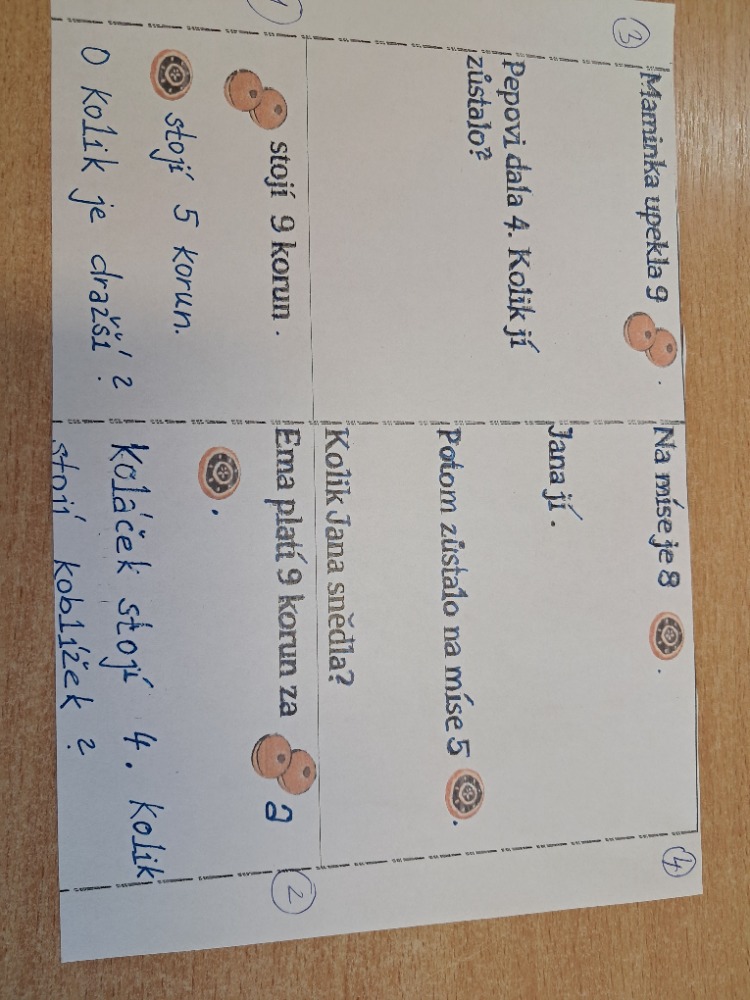 3
Maminka upekla 9 .
Pepovi dala 4. Kolik jí
zůstalo?
4
Na míse je 8 .
Jana jí .
Potom zůstalo na míse 5 .
Kolik Jana snědla?
1
stojí 9 korun .
stojí 5 korun.
O kolik je dražší ?
2
Ema platí 9 korun za a
.
Koláček stojí 4. Kolik
stojí koblížek ?